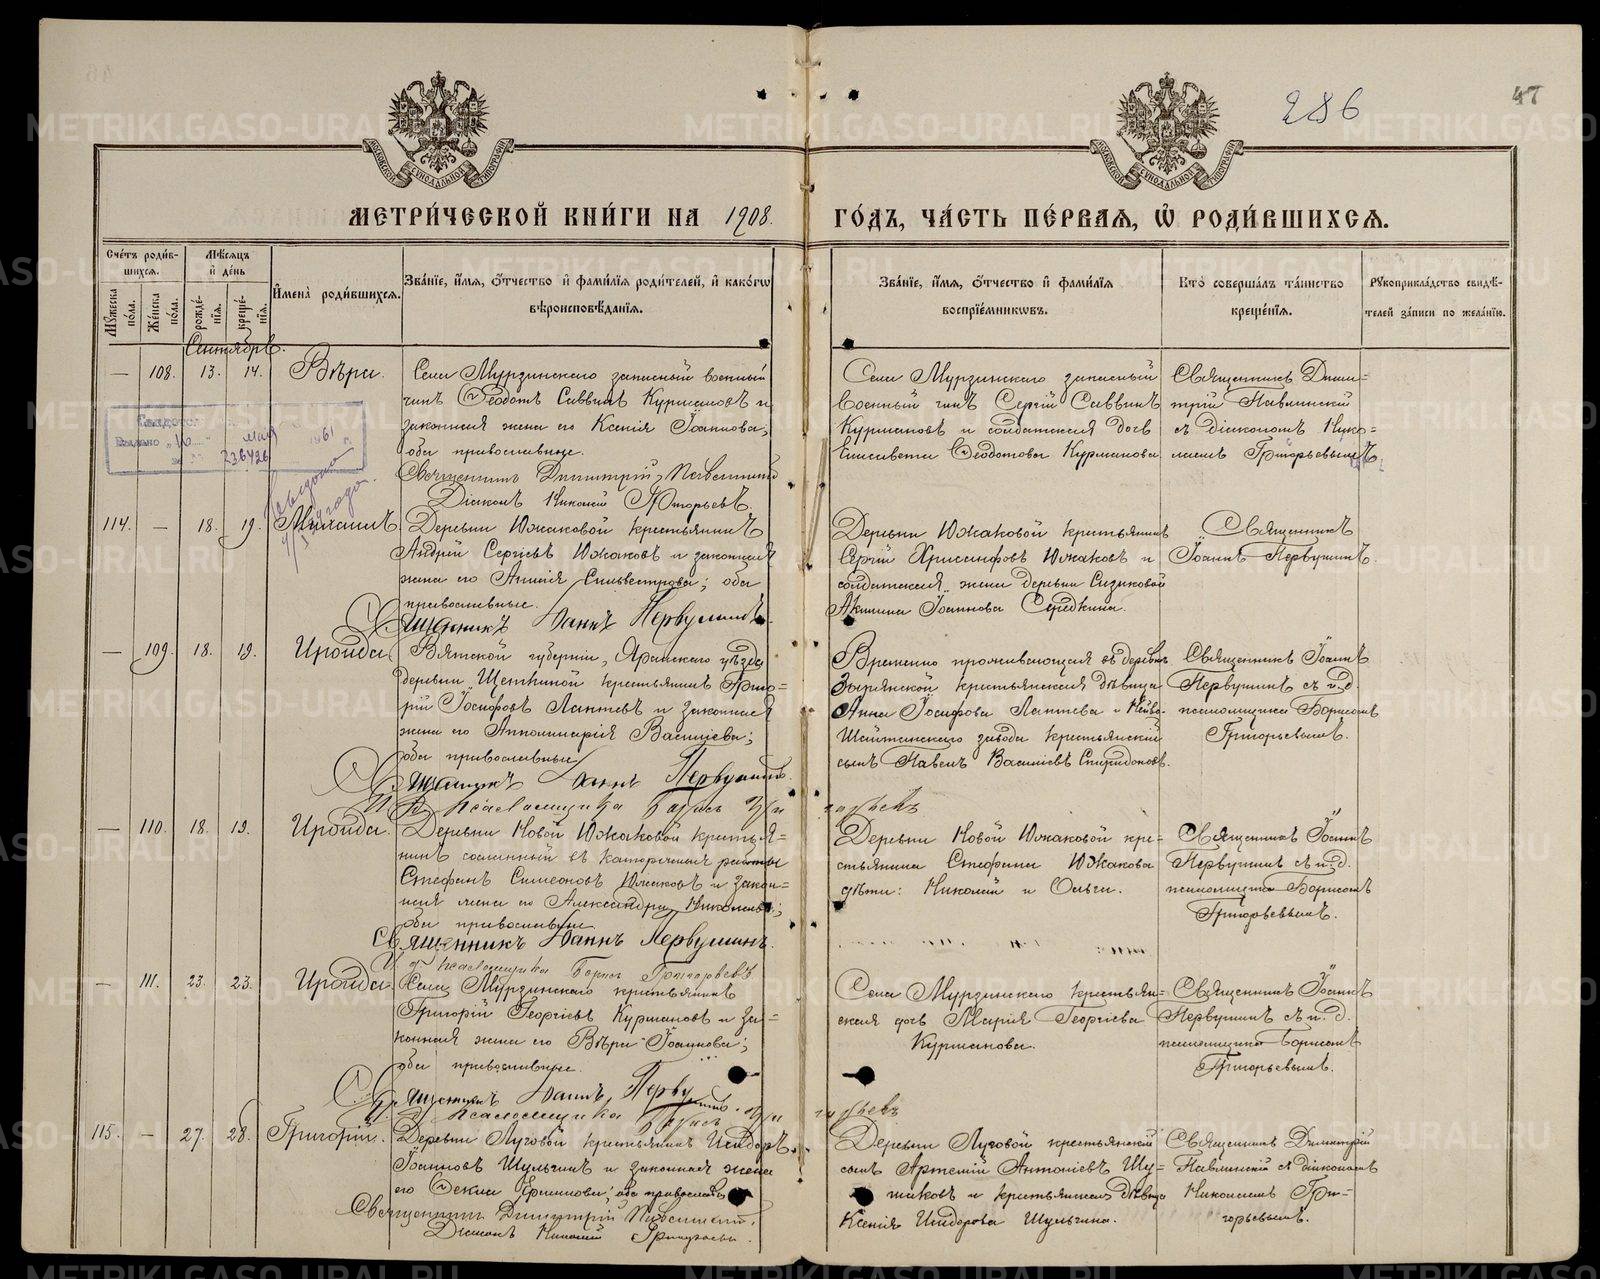 286
47
МОСКОВСКОЙ СѴНОДАЛЬНОЙ ТИПОГРАФІИ
МОСКОВСКОЙ СѴНОДАЛЬНОЙ ТИПОГРАФІИ
МЕТРИ́ЧЕСКОЙ КНИ́ГИ НА 1908. ГО́ДЪ, ЧА́СТЬ ПЕ́РВАѦ, Ѡ҆ РОДИ́ВШИХСѦ.
Сче́тъ роди́в-
шихсѧ.
Мѣ́сѧцъ
и҆ де́нь
Мꙋ́жеска
по́ла.
Же́нска
по́ла.
рожде́-
нїѧ.
креще́-
нїѧ.
И҆мена̀ роди́вшихсѧ.
Зва́нїе, и҆́мѧ, ѻ҆́тчество и҆ фами́лїѧ роди́телей, и҆ како́гѡ
вѣроисповѣ́данїѧ.
Зва́нїе, и҆́мѧ, ѻ҆́тчество и҆ фами́лїѧ
воспрїе́мникѡвъ.
Кто̀ соверша́лъ та́инство
креще́нїѧ.
Рꙋкоприкла́дство свидѣ́-
телей за́писи по жела́нїю.
Сентябрь.
— 108. 13. 14. Вѣра.
Села Мурзинскаго запасный военный
чинъ Ѳеодотъ Саввинъ Курмановъ и
законная жена его Ксенія Іоаннова;
оба православные.
Священникъ Димитрій Павлинскій
Діаконъ Николай Григорьевъ.
Села Мурзинскаго запасный
военный чинъ Сергій Саввинъ
Курмановъ и солдатская дочь
Елисавета Ѳеодотова Курманова
Священникъ Дими-
трій Павлинскій
съ діакономъ Нико-
лаемъ Григорьевымъ
Выдано „10 мая 1961 г.
236426
114. — 18. 19. Михаилъ
Деревни Южаковой крестьянинъ
Андрей Сергіевъ Южаковъ и законная
жена его Анисія Сильвестрова; оба
православные.
Священникъ Іоаннъ Первушинъ.
Деревни Южаковой крестьянинъ
Сергій Хрисанфовъ Южаковъ и
солдатская жена деревни Сизиковой
Акилина Іоаннова Середкина.
Священникъ
Іоаннъ Первушинъ.
— 109. 18. 19. Ираида
Вятской губерніи, Яранскаго уѣзда
деревни Щеткиной крестьянинъ Григо-
рій Іосифовъ Лаптевъ и законная
жена его Апполинарія Васильева;
оба православные
Священникъ Іоаннъ Первушинъ.
И. д. псаломщика Борисъ Григорьевъ
Временно проживающая въ деревнѣ
Зырянской крестьянская дѣвица
Анна Іосифова Лаптева и Нейво-
Шайтанскаго завода крестьянскій
сынъ Павелъ Василіевъ Спиридоновъ.
Священникъ Іоаннъ
Первушинъ съ и. д.
псаломщика Борисомъ
Григорьевымъ.
— 110. 18. 19. Ираида.
Деревни Новой Южаковой крестья-
нинъ сосланный въ каторжныя работы
Стефанъ Симеоновъ Южаковъ и закон-
ная жена его Александра Николаева;
оба православные
Священникъ Іоаннъ Первушинъ.
И. д. псаломщика Борисъ Григорьевъ
Деревни Новой Южаковой кре-
стьянина Стефана Южакова
дѣти: Николай и Ольга.
Священникъ Іоаннъ
Первушинъ съ и. д.
псаломщика Борисомъ
Григорьевымъ.
— 111. 23. 23. Ираида
Села Мурзинскаго крестьянинъ
Григорій Георгіевъ Курмановъ и за-
конная жена его Вѣра Іоаннова;
оба православные.
Священникъ Іоаннъ Первушинъ.
И. д. псаломщика Борисъ Григорьевъ
Села Мурзинскаго крестьян-
ская дочь Марія Георгіева
Курманова.
Священникъ Іоаннъ
Первушинъ съ и. д.
псаломщика Борисомъ
Григорьевымъ.
115. — 27. 28. Григорій.
Деревни Луговой крестьянинъ Исидоръ
Іоанновъ Шульгинъ и законная жена
его Ѳекла оба православные
Священникъ Димитрій Павлинскій.
Діаконъ Николай Григорьевъ.
Деревни Луговой крестьянскій
сынъ Артемій Антоніевъ
и крестьянская дѣвица
Ксенія Исидорова Шульгина.
Священникъ Димитрій
Павлинскій съ діакономъ
Николаемъ Гри-
горьевымъ.
METRIKI.GASO-URAL.RU